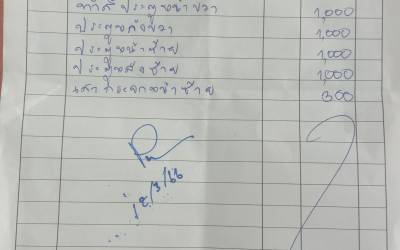 ทำสีประตูหน้าขวา 1,000
ประตูหลังขวา 1,000
ประตูหน้าซ้าย 1,000
ประตูหลังซ้าย 1,000
เสากระจกหน้าซ้าย 300